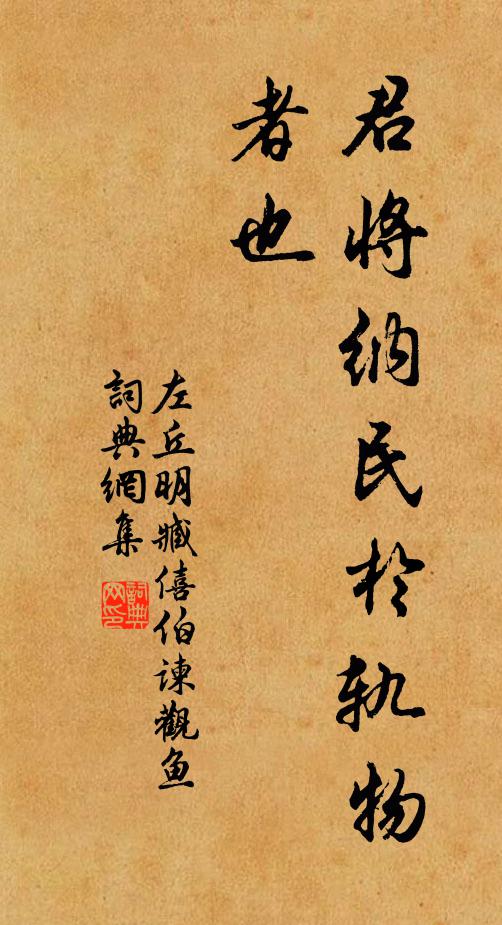 君將纳民於轨物
者也
左丘明臧僖伯谏觀鱼
詞典網集
詞典
网印